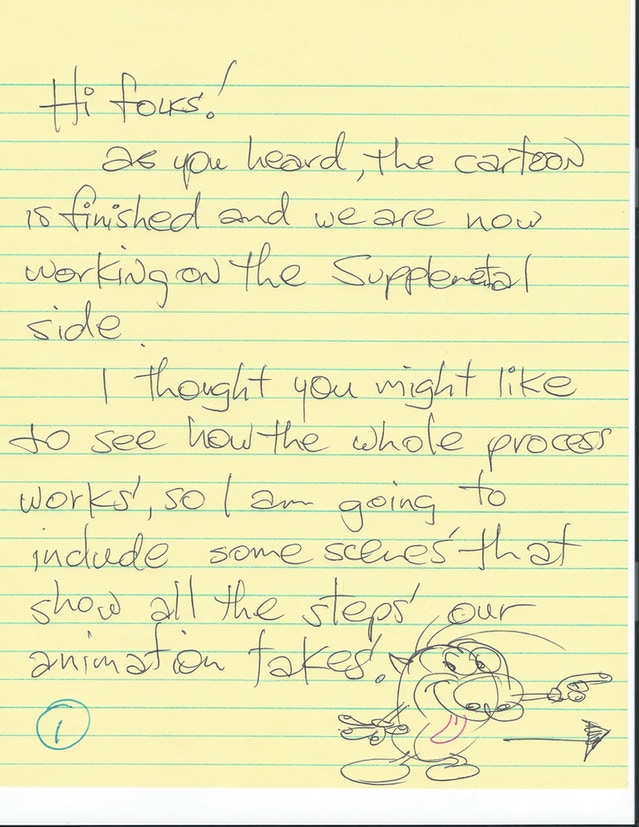 Hi folks!
as you heard, the cartoon
is finished and we are now
working on the Supplemetal
side.
I thought you might like
to see how the whole process
works, so I am going to
include some scenes that
show all the steps our
animation takes.
1